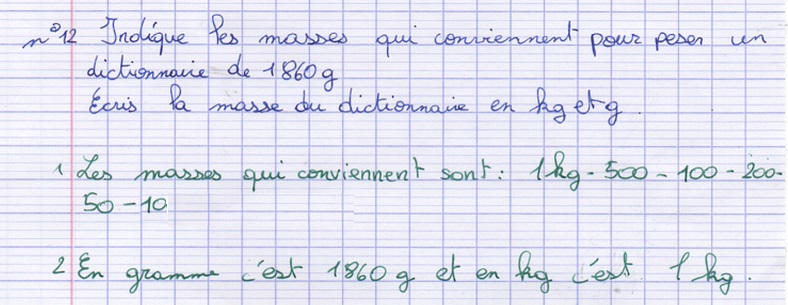 n°12 Indique les masses qui conviennent pour peser un
dictionnaire de 1860g
Écris la masse du dictionnaire en kg et g.
1 Les masses qui conviennent sont : 1kg - 500 - 100 - 200-
50 - 10
2 En gramme c'est 1860 g et en kg c'est 1 kg.